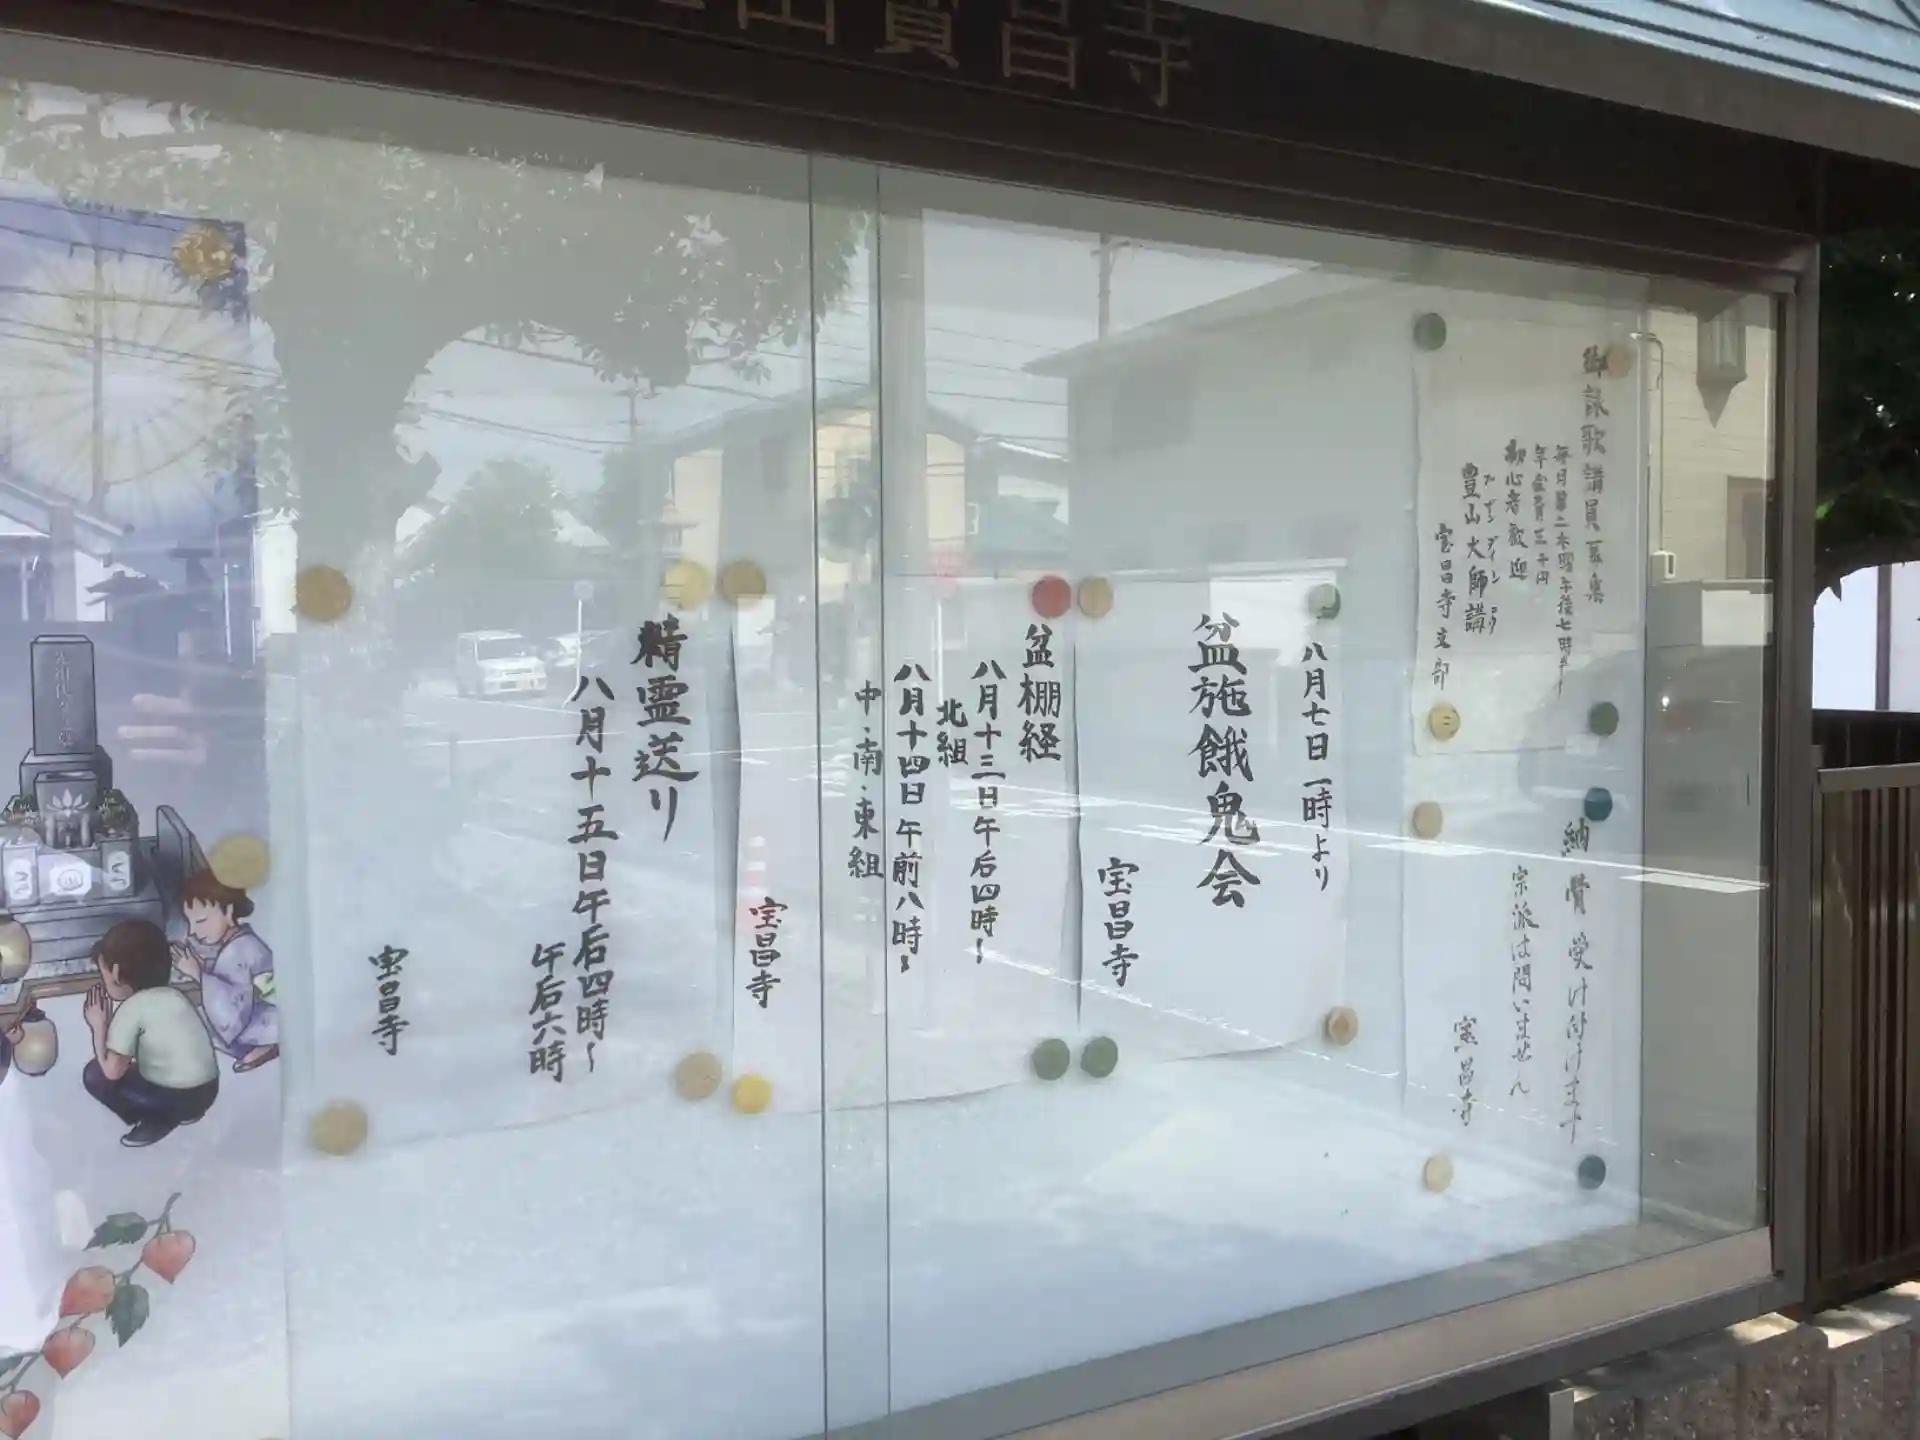 山寳昌寺
御詠歌講員募集
毎月第二木曜午後七時半〜
年会費三千円
初心者歓迎
ブザンダイシコウ
豊山大師講
宝昌寺支部
納骨受け付けます
宗派は問いません
宝昌寺
八月七日一時より
盆施餓鬼会
宝昌寺
盆棚経
八月十三日午后四時〜
北組
八月十四日午前八時〜
中・南・東組
宝昌寺
精霊送り
八月十五日午后四時〜
午后六時
宝昌寺